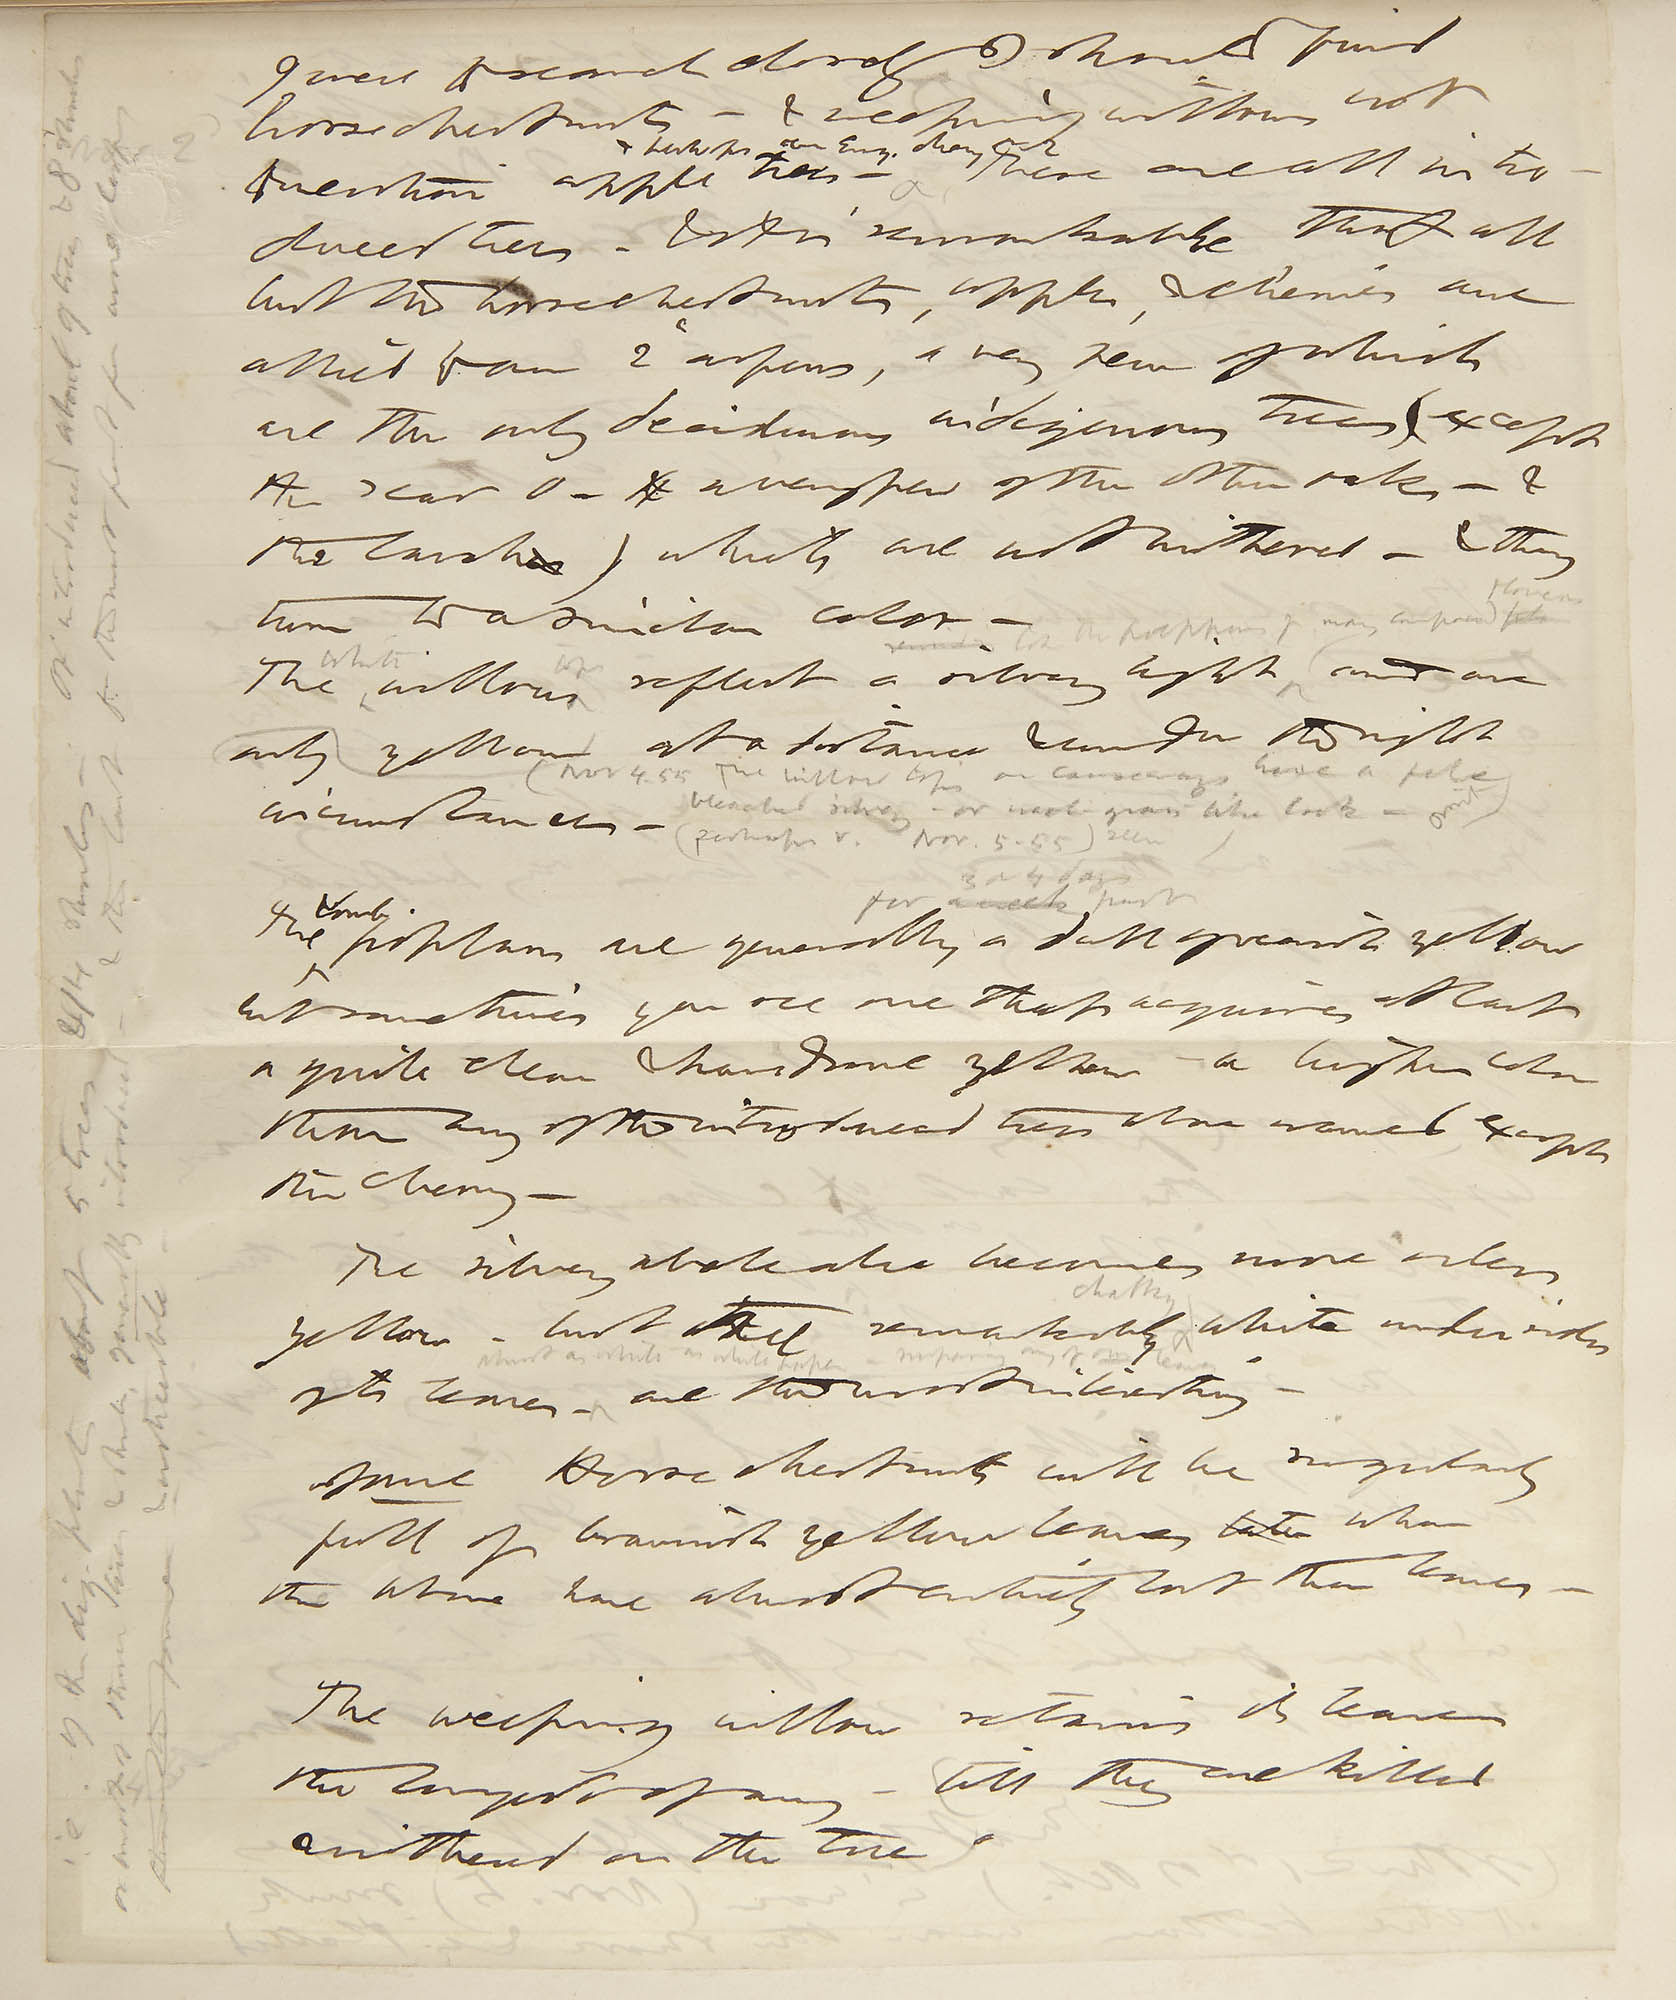 I were to search closely I should find
horsechestnuts — & weeping willows not
& perhaps an Eng. cherry or 2
to mention apple trees — These are all intro-
duced trees — & it is remarkable that all
but the horsechestnuts, apples, & cherries are
allied to our 2 aspens, a very few of which
are the only deciduous indigenous trees (except
the scar O — & a very few of the other oaks — &
the larches) which are not withered — & they
turn to a similar color —
flowers
for the
many compound
white tops
The willows reflect a silvery light, and are
only yellow at a distance & under the right
(Nov 4. 55 The willow tops on causeways have a pale
circumstances —
bleached silvery — or wool-grass like look —
(perhaps v. Nov. 5-55) seen
3 or 4 days
for a week past
The tremb. poplars are generally a dull greenish yellow
but sometimes you see one that acquires at last
a quite clear & handsome yellow — a higher color
than any of the introduced trees above named except
the cherry —
The silvery abele also becomes more or less
chalky
yellow — but the remarkably white undersides
almost as white as white paper — surpassing any of our leaves
of its leaves — are the most interesting —
Some Horsechestnuts will be singularly
full of brownish yellow leaves later when
the above have almost entirely lost their leaves —
The weeping willow retains its leaves
the longest of any — till they are killed
& withered on the tree
i.e. of the indig. plants about 5 trees & 14 shrubs — Of introduced about 9 trees & 8 shrubs
& shrubs, generally introduced — & the last for the most part
horsechestnuts
2